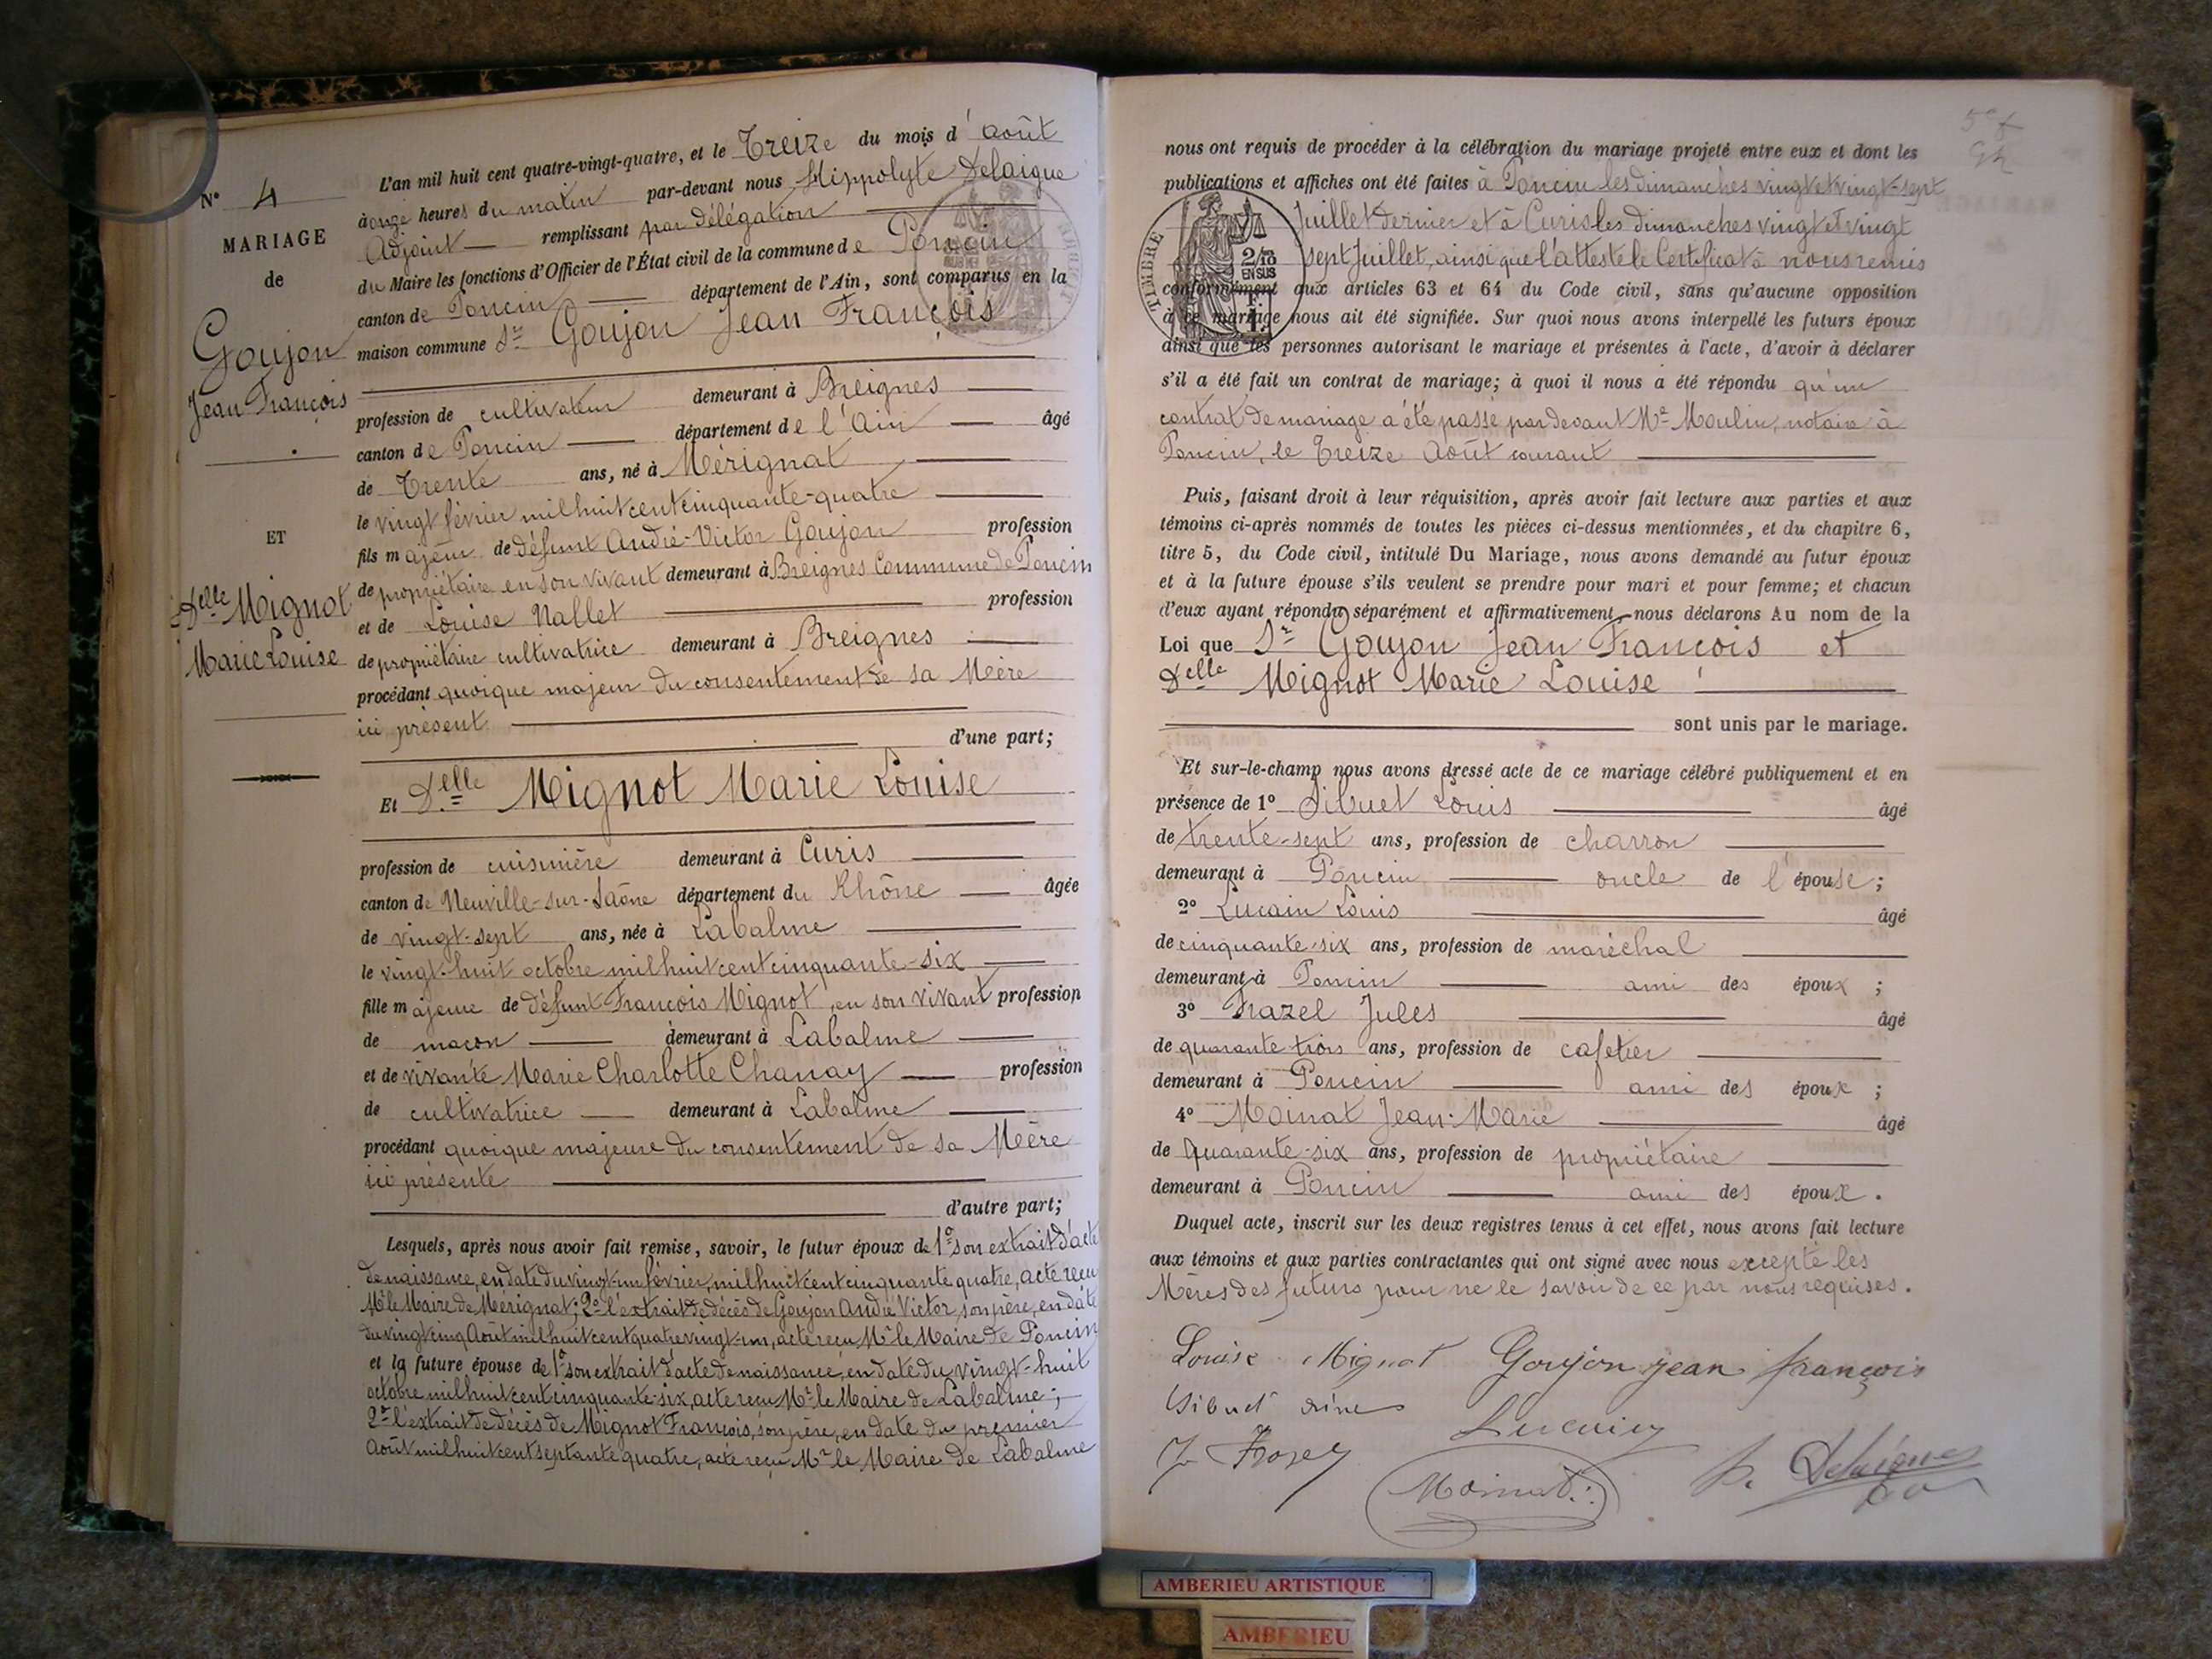 L'an mil huit cent quatre-vingt-quatre, et le Treize du mois d'août
à onze heures du matin par-devant nous Hippolyte Delaigue
Adjoint remplissant par délégation
du Maire les fonctions d'Officier de l'État civil de la commune de Poncin
canton de Poncin département de l'Ain, sont comparus en la
maison commune Sr Goujon Jean François
profession de cultivateur demeurant à Breignes
canton de Poncin département de l'Ain âgé
de Trente ans, né à Mérignat
le vingt février mil huit cent cinquante-quatre
fils majeur de défunt André-Victor Goujon profession
de propriétaire en son vivant demeurant à Breignes Commune de Poncin
et de Louise Nallet profession
de propriétaire cultivatrice demeurant à Breignes
procédant quoique majeur du consentement de sa Mère
ici présent
d'une part;
Et Delle Mignot Marie Louise
profession de cuisinière demeurant à Curis
canton de Neuville-sur-Saône département du Rhône âgée
de vingt-sept ans, née à Labalme
le vingt-huit octobre mil huit cent cinquante-six
fille majeure de défunt François Mignot, en son vivant profession
de maçon demeurant à Labalme
et de vivante Marie Charlotte Chanay profession
de cultivatrice demeurant à Labalme
procédant quoique majeure du consentement de sa Mère
ici présente
d'autre part;
Lesquels, après nous avoir fait remise, savoir, le futur époux de 1º son extrait d'acte
de naissance, en date du vingt-un février, mil huit cent cinquante quatre, acte reçu
Mr le Maire de Mérignat; 2º l'extrait de décès de Goujon André Victor, son père, en date
du vingt cinq Août mil huit cent quatre vingt-un, acte reçu Mr le Maire de Poncin
et la future épouse de 1º son extrait d'acte de naissance, en date du vingt-huit
octobre mil huit cent cinquante-six, acte reçu Mr le Maire de Labalme;
2º l'extrait de décès de Mignot François, son père, en date du premier
Août mil huit cent septante quatre, acte reçu Mr le Maire de Labalme
Nº 4
MARIAGE
de
Goujon
Jean François
ET
Delle Mignot
Marie Louise
nous ont requis de procéder à la célébration du mariage projeté entre eux et dont les
publications et affiches ont été faites à Poncin les dimanches vingt et vingt-sept
Juillet dernier et à Curis les dimanches vingt et vingt
sept Juillet, ainsi que l'atteste le Certificat à nous remis
conformément aux articles 63 et 64 du Code civil, sans qu'aucune opposition
à ce mariage nous ait été signifiée. Sur quoi nous avons interpellé les futurs époux
ainsi que les personnes autorisant le mariage et présentes à l'acte, d'avoir à déclarer
s'il a été fait un contrat de mariage; à quoi il nous a été répondu qu'un
contrat de mariage a été passé par devant Me Moulin, notaire à
Poncin, le Treize Août courant
TIMBRE
2/10
EN SUS
Puis, faisant droit à leur réquisition, après avoir fait lecture aux parties et aux
témoins ci-après nommés de toutes les pièces ci-dessus mentionnées, et du chapitre 6,
titre 5, du Code civil, intitulé Du Mariage, nous avons demandé au futur époux
et à la future épouse s'ils veulent se prendre pour mari et pour femme; et chacun
d'eux ayant répondu séparément et affirmativement nous déclarons Au nom de la
Loi que Sr Goujon Jean François et
Delle Mignot Marie Louise
sont unis par le mariage.
Et sur-le-champ nous avons dressé acte de ce mariage célébré publiquement et en
présence de 1º Sibuet Louis âgé
de trente-sept ans, profession de charron
demeurant à Poncin oncle de l'épouse;
2º Lucain Louis âgé
de cinquante-six ans, profession de maréchal
demeurant à Poncin ami des époux;
3º Frazel Jules âgé
de quarante trois ans, profession de cafetier
demeurant à Poncin ami des époux;
4º Moinat Jean-Marie âgé
de Quarante-six ans, profession de propriétaire
demeurant à Poncin ami des époux.
Duquel acte, inscrit sur les deux registres tenus à cet effet, nous avons fait lecture
aux témoins et aux parties contractantes qui ont signé avec nous excepté les
Mères des futurs pour ne le savoir de ce par nous requises.
Louise Mignot Goujon jean françois
Sibuet
Moinat
Delaigue
AMBERIEU ARTISTIQUE
AMBERIEU